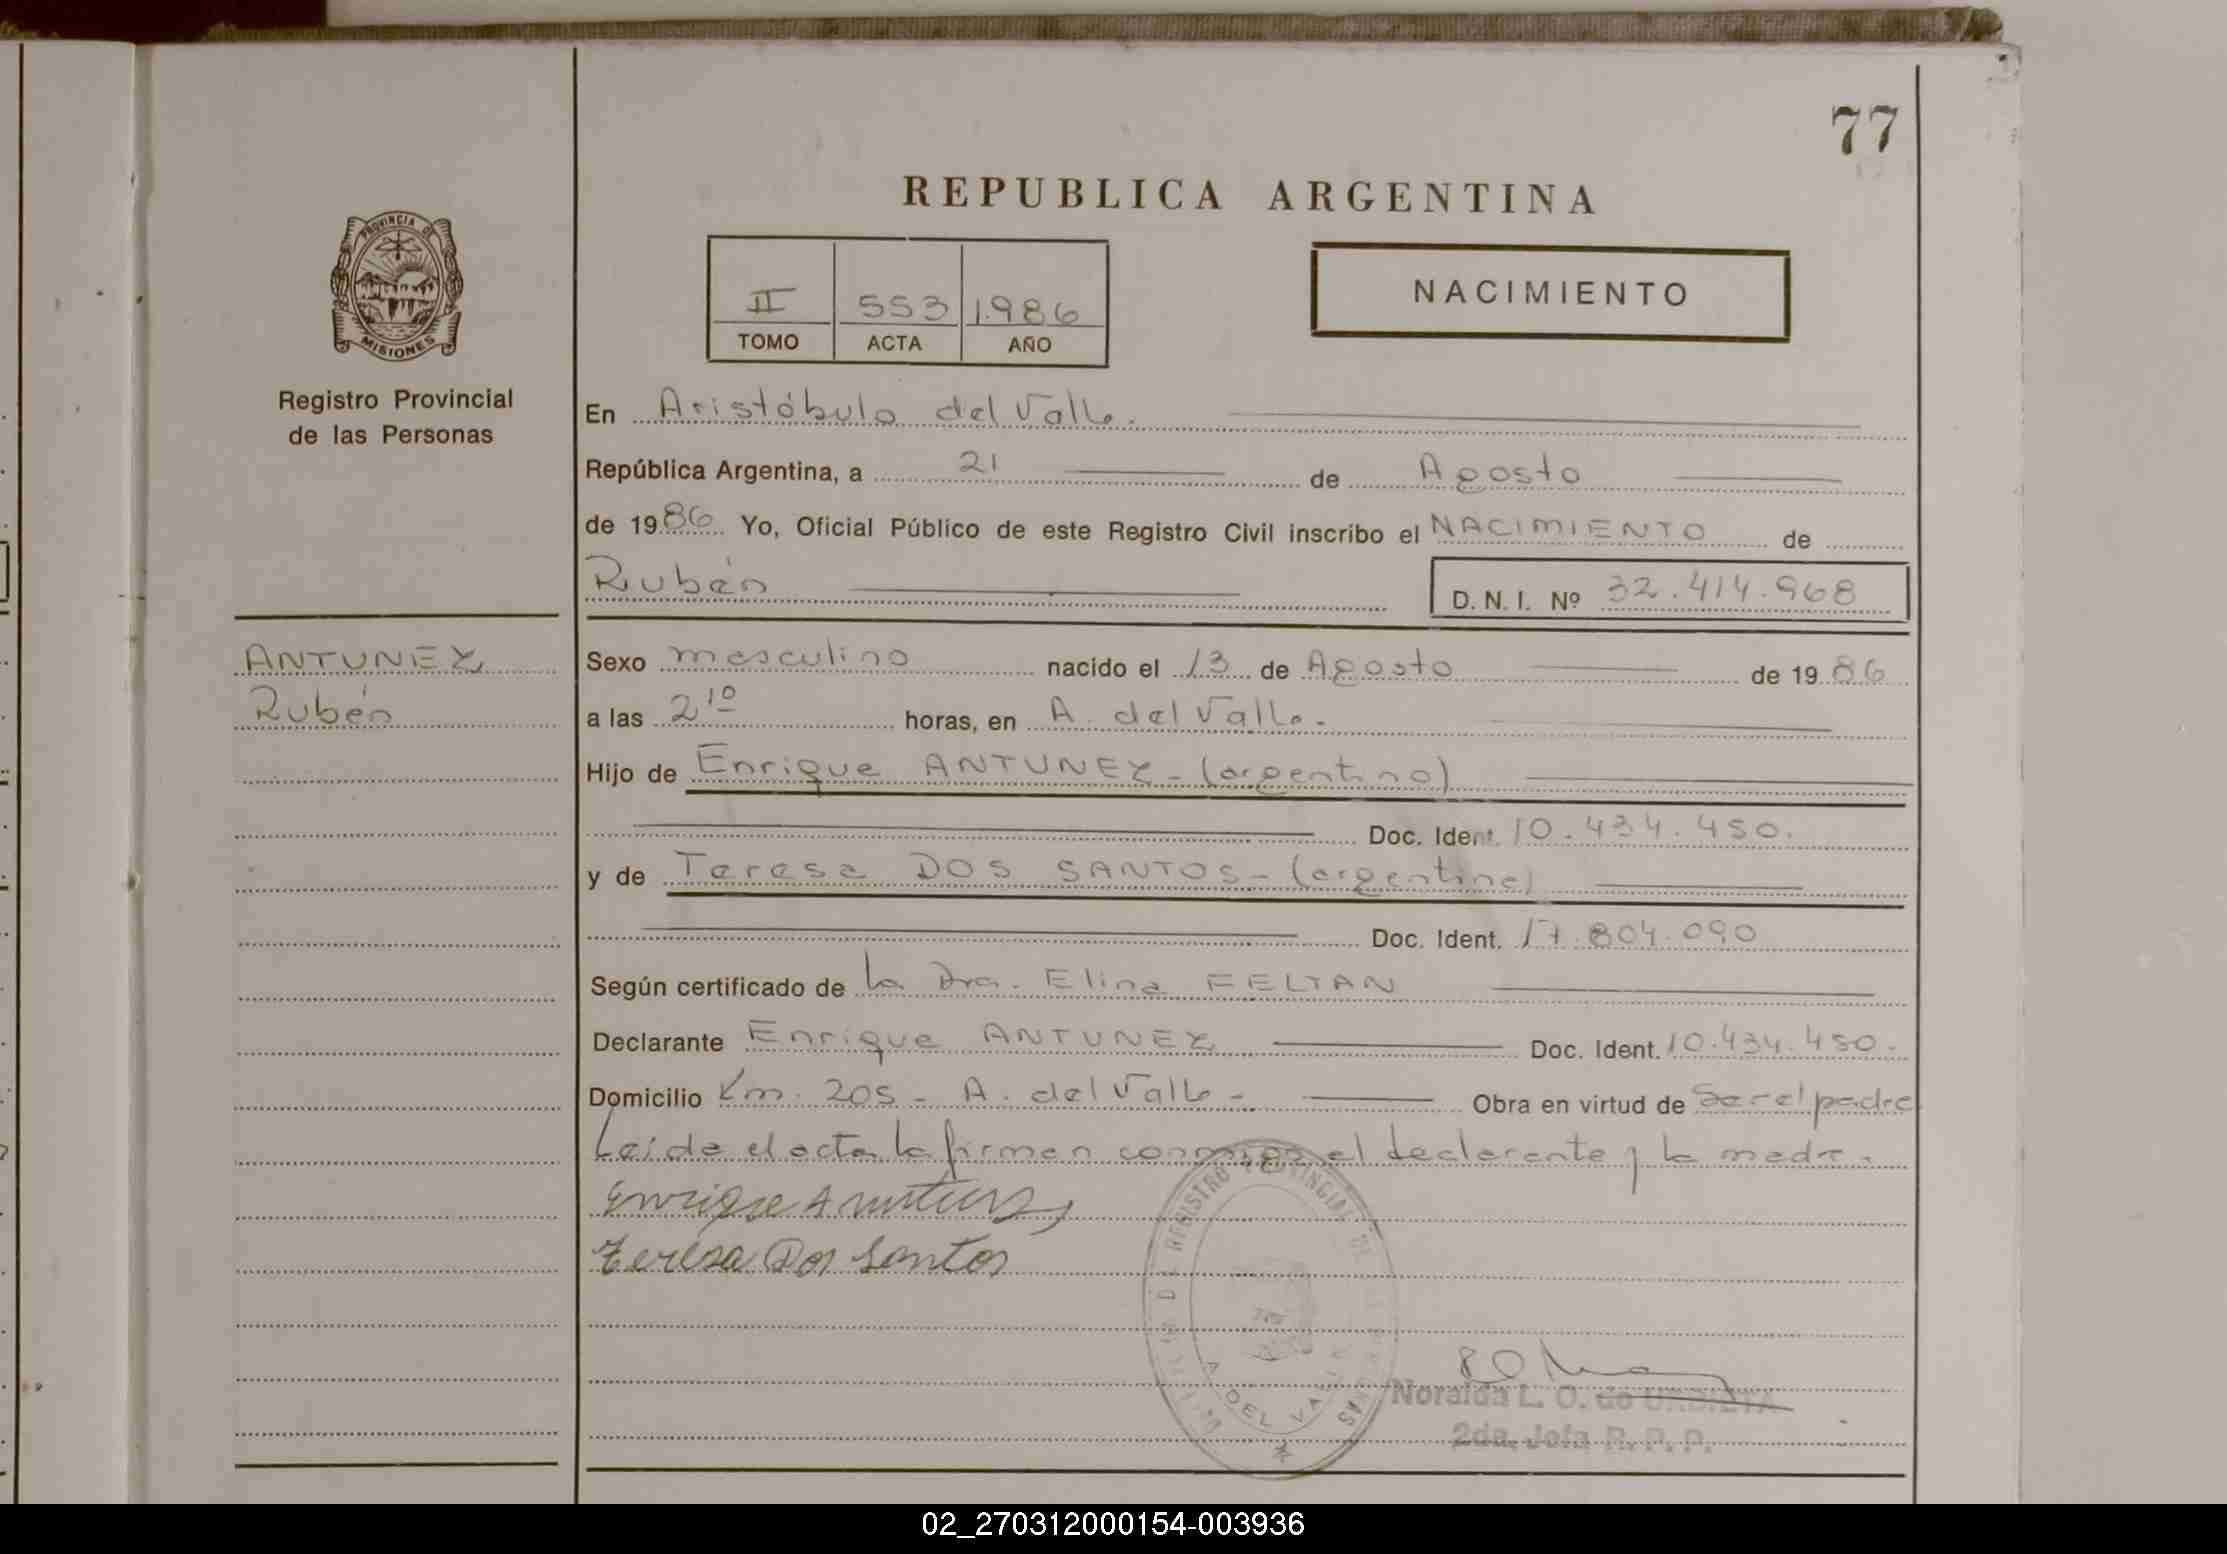 77
REPUBLICA ARGENTINA
PROVINCIA DE
MISIONES
Registro Provincial
de las Personas
II 553 1.986
TOMO ACTA AÑO
NACIMIENTO
En Aristóbulo del Valle.
República Argentina, a 21 de Agosto
de 1986 Yo, Oficial Público de este Registro Civil inscribo el NACIMIENTO de
Rubén
D. N. I. Nº 32.414.968
ANTUNEZ
Rubén
Sexo masculino nacido el 13 de Agosto de 1986
a las 21º horas, en A. del Valle.
Hijo de Enrique ANTUNEZ - (argentino)
Doc. Ident. 10.434.450.
y de Teresa DOS SANTOS - (argentina)
Doc. Ident. 17.804.090
Según certificado de la Dra. Elina FELTAN
Declarante Enrique ANTUNEZ Doc. Ident. 10.434.450.
Domicilio Km. 205 - A. del Valle - Obra en virtud de Ser el padre
Leida el acta la firman conmigo el declarante y la madre.
Enrique Antunez
Teresa Dos Santos
REGISTRO PROVINCIAL DE
A. DEL VALLE
Noralda L. O. de URBIETA
2da. Jefa R. P. P.
02_270312000154-003936